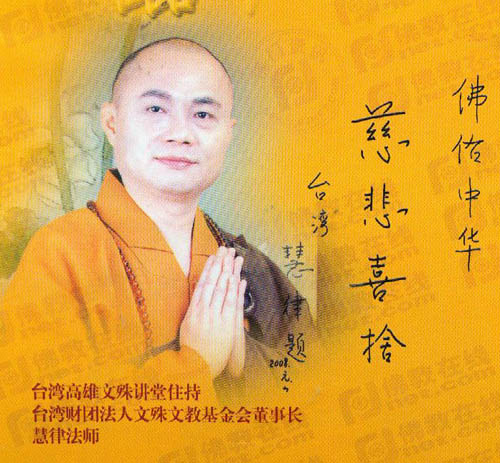 佛佑中华
慈悲喜捨
台湾
慧律题
2008.元.
台湾高雄文殊讲堂住持
台湾财团法人文殊文教基金会董事长
慧律法师
佛教在线